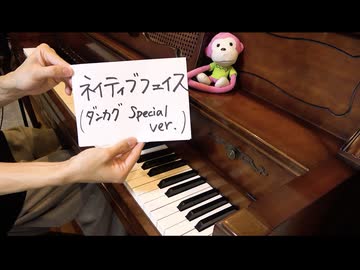 ネイティブフェイス
(ダンカグ Special
ver.)